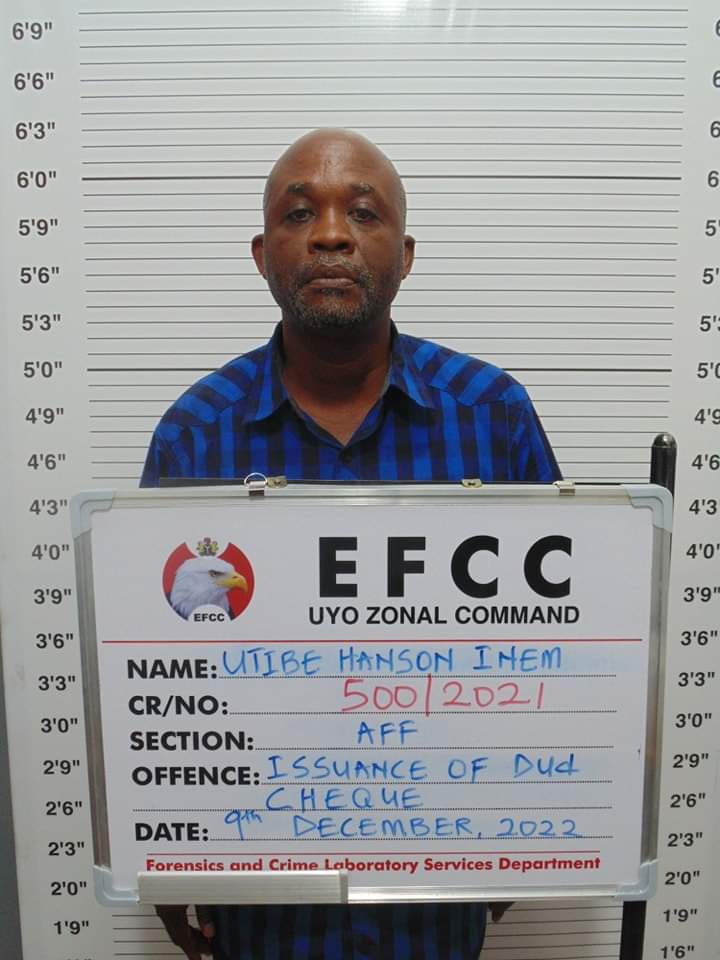 6'9"
6'6"
6'3"
6'0"
5'9"
5'6"
5'3"
5'0"
4'9"
4'6"
4'3"
4'0"
3'9"
3'6"
3'3"
3'0"
2'9"
2'6"
2'3"
2'0"
1'9"
EFCC
EFCC
UYO ZONAL COMMAND
NAME: UTIBE HANSON INEM
CR/NO: 500/2021
SECTION: AFF
OFFENCE: ISSUANCE OF Dud
CHEQUE
DATE: 9th DECEMBER, 2022
Forensics and Crime Laboratory Services Department
4'6
4'3
4'0'
3'9"
3'6"
3'3"
3'0"
2'9"
2'6"
2'3"
2'0"
1'9"
1'6"